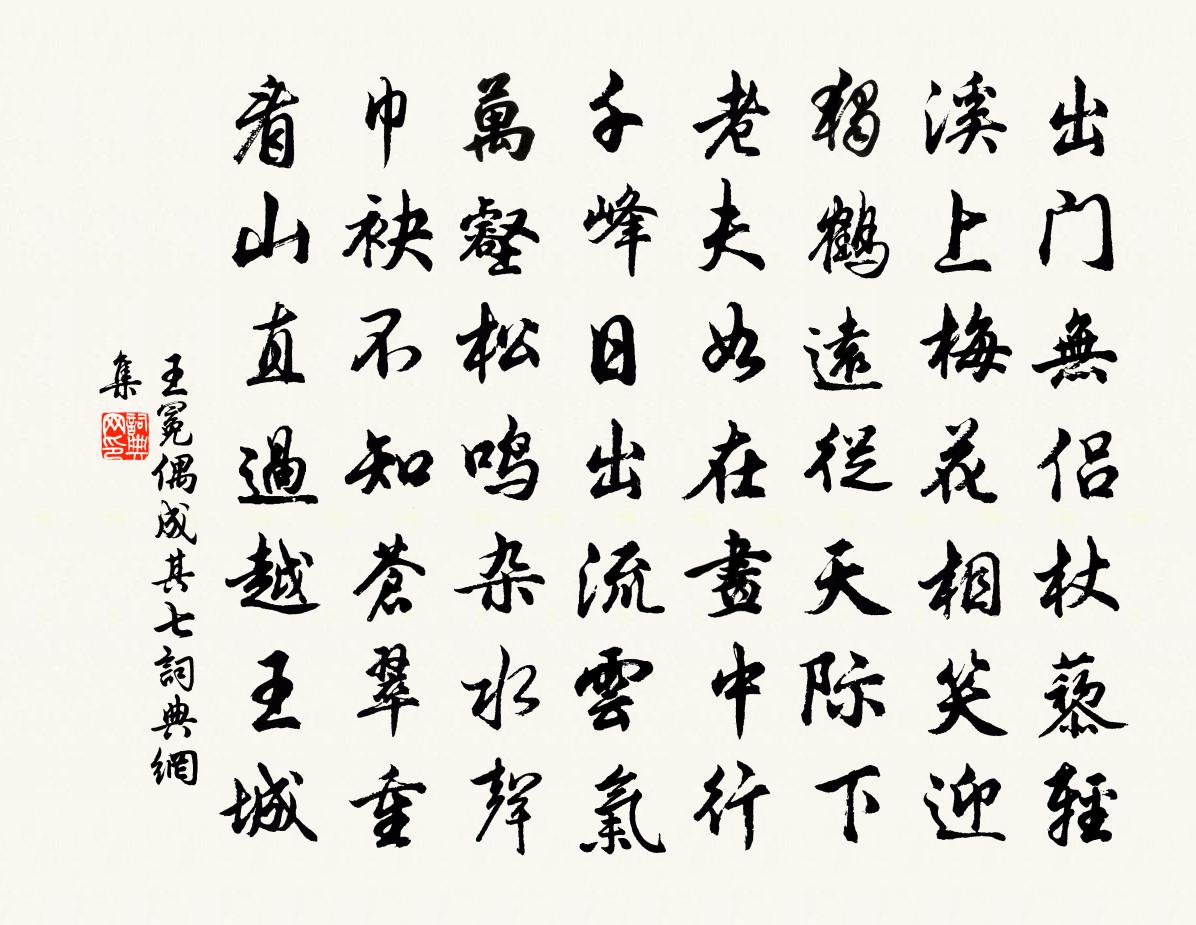 出门無侣杖藜輕
溪上梅花相笑迎
獨鶴遠從天际下
老夫如在畫中行
千峰日出流雲氣
萬壑松鸣杂水聲
巾袂不知蒼翠重
看山直過越王城
王冕偶成其七詞典網
集
詞典
网印